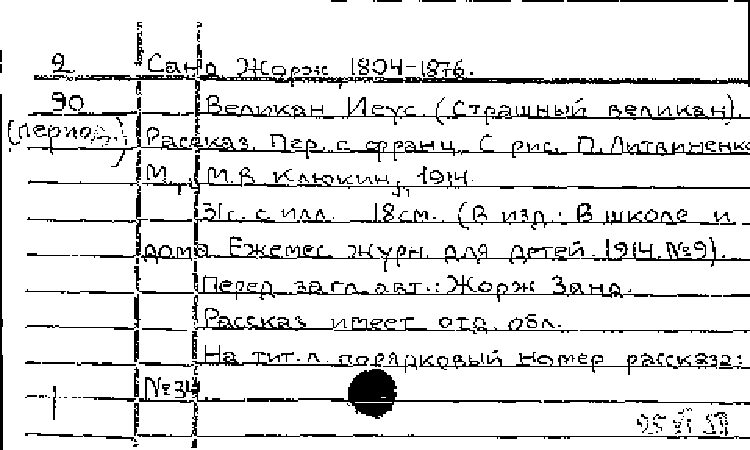 2 Санд Жорж, 1804-1876.
90 Великан Иеус. (Страшный великан).
(период.) Рассказ. Пер. с франц. С рис. П. Литвиненко
М., М.В. Клюкин, 1914.
31с. с илл. 18см. (В изд.: В школе и
дома. Ежемес. журн. для детей. 1914. №9).
Перед загл. авт.: Жорж Занд.
Рассказ имеет отд. обл.
На тит. л. порядковый номер рассказа:
№34